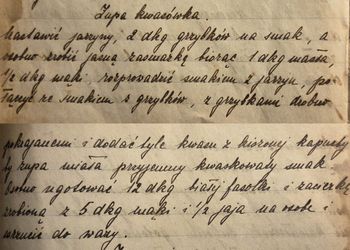 Zupa kwasówka.
Nastawić jarzyny, 2 dkg grzybków na smak, a
osobno zrobić jasną zasmażkę biorąc 1 dkg masła,
1/2 dkg mąki, rozprowadzić smakiem z jarzyn, po-
łączyć ze smakiem z grzybków, z grzybkami drobno
pokrajanemi i dodać tyle kwasu z kiszonej kapusty
by zupa miała przyjemny kwaskowaty smak.
Osobno ugotować 12 dkg białej fasolki i zacierkę
zrobioną z 5 dkg mąki i 1/2 jaja na osobę i
wrzucić do wazy.